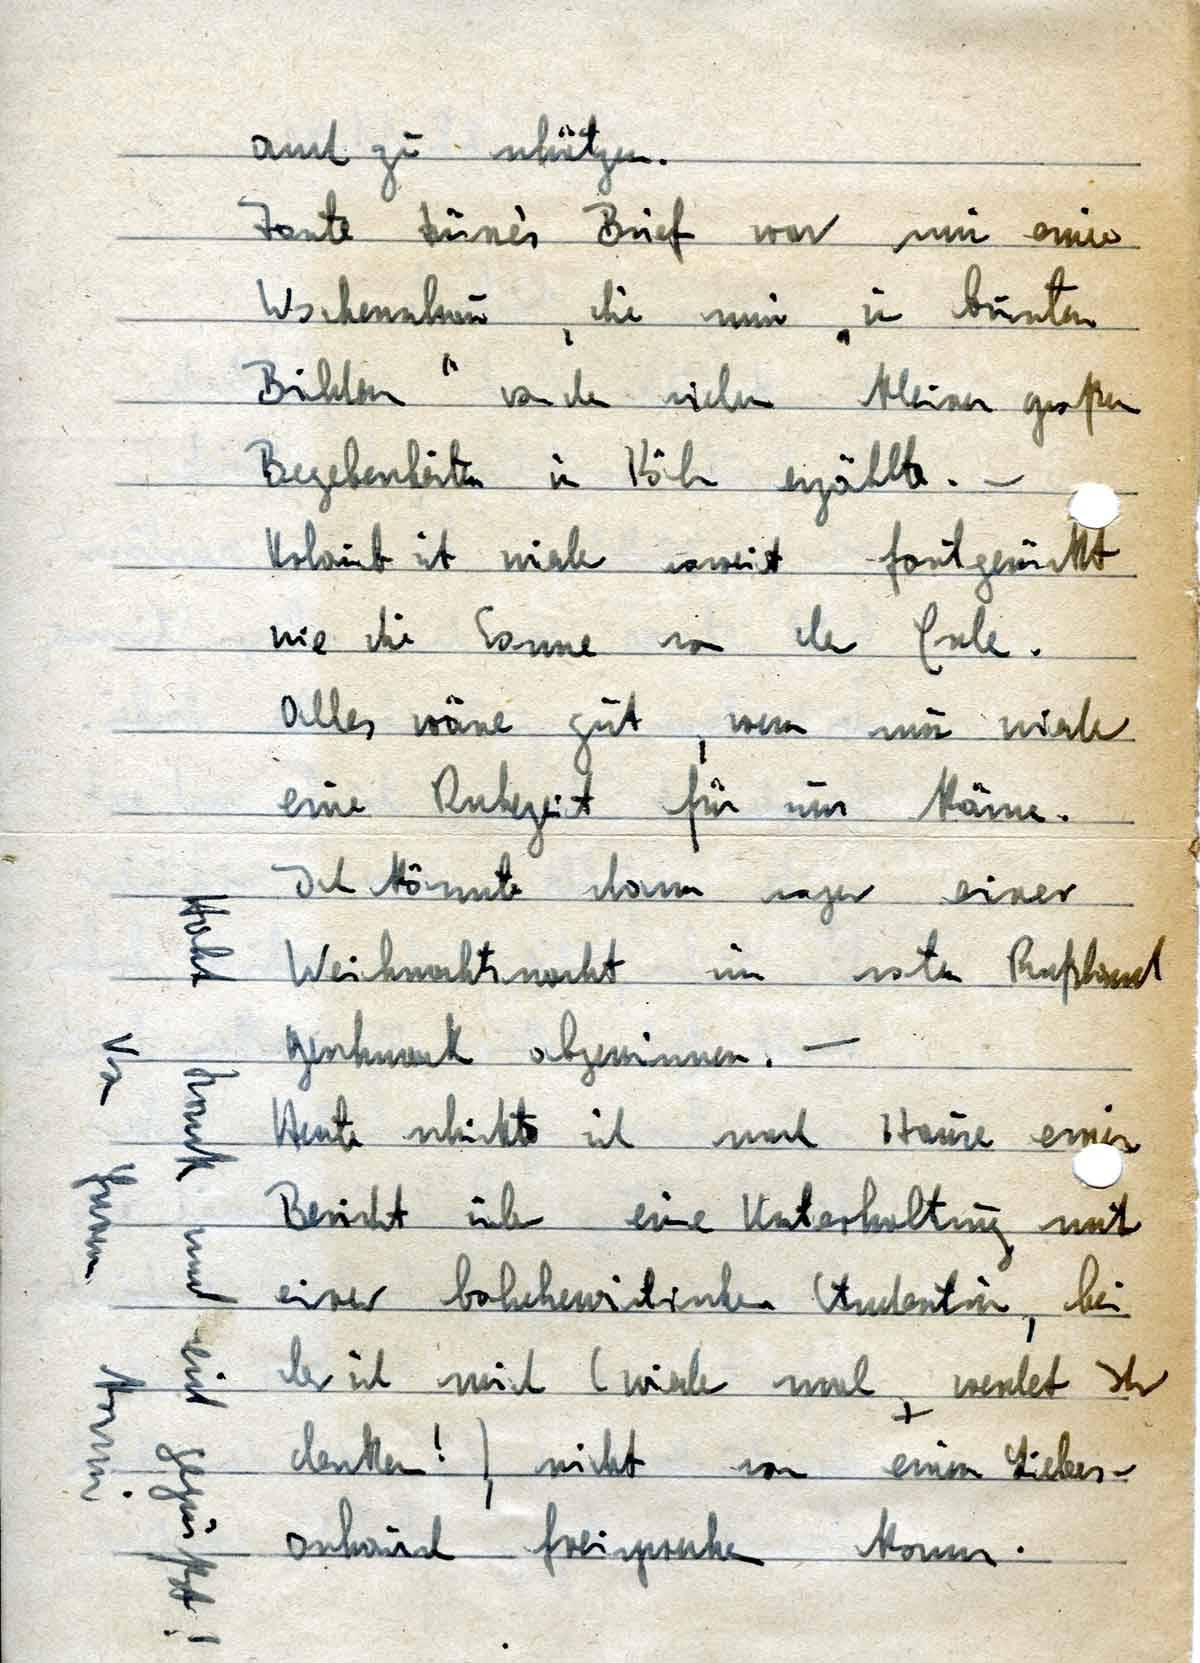 und zu schätzen.
Tante Brief war mir eine
Wochenschau, die mir „in bunten
Bildern" von den vielen kleinen großen
Begebenheiten in Köln erzählte. —
Urlaub ist wieder soweit fortgerückt
wie die Sonne von der Erde.
Alles wäre gut, wenn nur wieder
eine Ruhezeit für uns käme.
Ich könnte dann sogar einer
Weihnachtsnacht im roten Rußland
Geschmack abgewinnen. —
Heute schickte ich nach Hause einen
Bericht über eine Unterhaltung mit
einer bolschewistischen Studentin, bei
der ich mich (wieder mal, werdet Ihr
denken!), nicht von einem Liebes-
anhauch freisprechen kann.
Habt Dank und seid gegrüßt!
Von Eurem